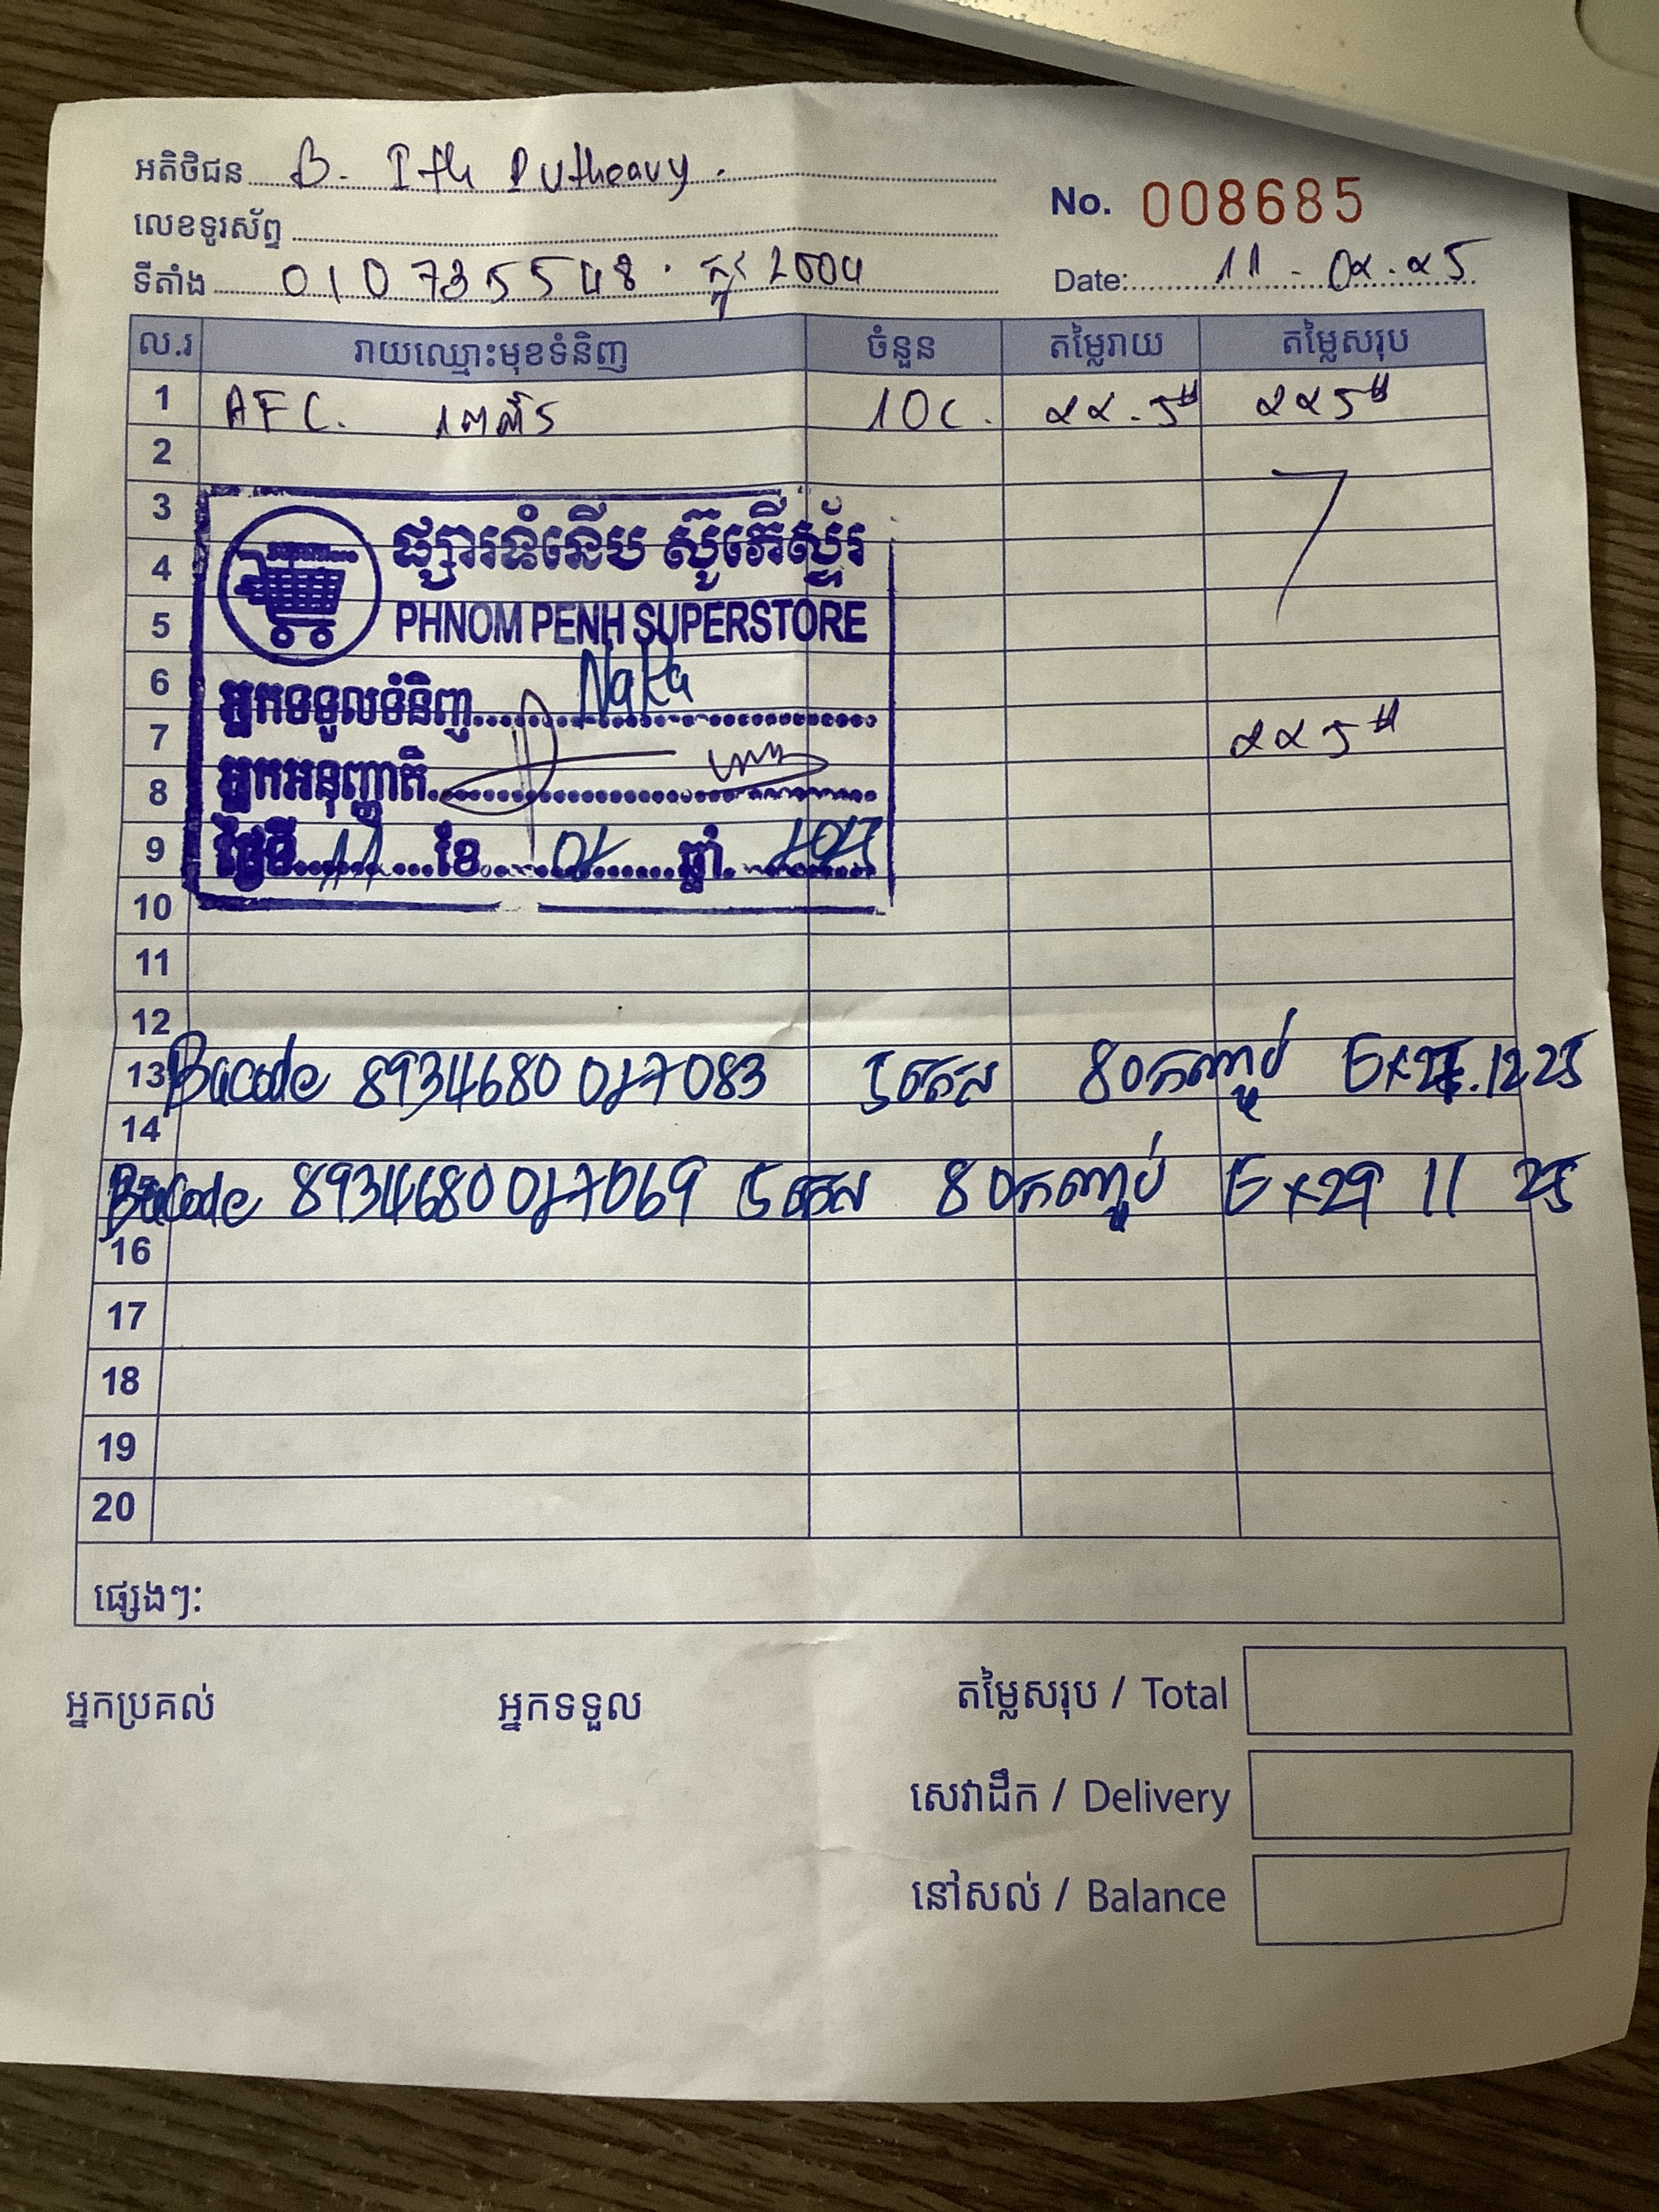 អតិថិជន B. Ith Putheavy.
No. 008685
លេខទូរស័ព្ទ
ទីតាំង 010 735548. ផ្លូវ 2004
Date: 11-02.25
ល.រ រាយឈ្មោះមុខទំនិញ ចំនួន តម្លៃរាយ តម្លៃសរុប
1 AFC. 10C. 22.5$ 225$
2
3
ផ្សារទំនើប ស៊ូភើស្ទ័រ
4
PHNOM PENH SUPERSTORE
5
6
អ្នកទទួលទំនិញ NaRa
7 225$
អ្នកអនុញ្ញាតិ
8
9 ថ្ងៃទី 11 ខែ 02 ឆ្នាំ 2025
10
11
12
13 Bacode 8934680027083 5កេស 80កញ្ចប់ Ex 12 25
14
Bacode 8934680027069 5កេស 80កញ្ចប់ Ex29 11 25
16
17
18
19
20
ផ្សេងៗ:
អ្នកប្រគល់ អ្នកទទួល
តម្លៃសរុប / Total
សេវាដឹក / Delivery
នៅសល់ / Balance